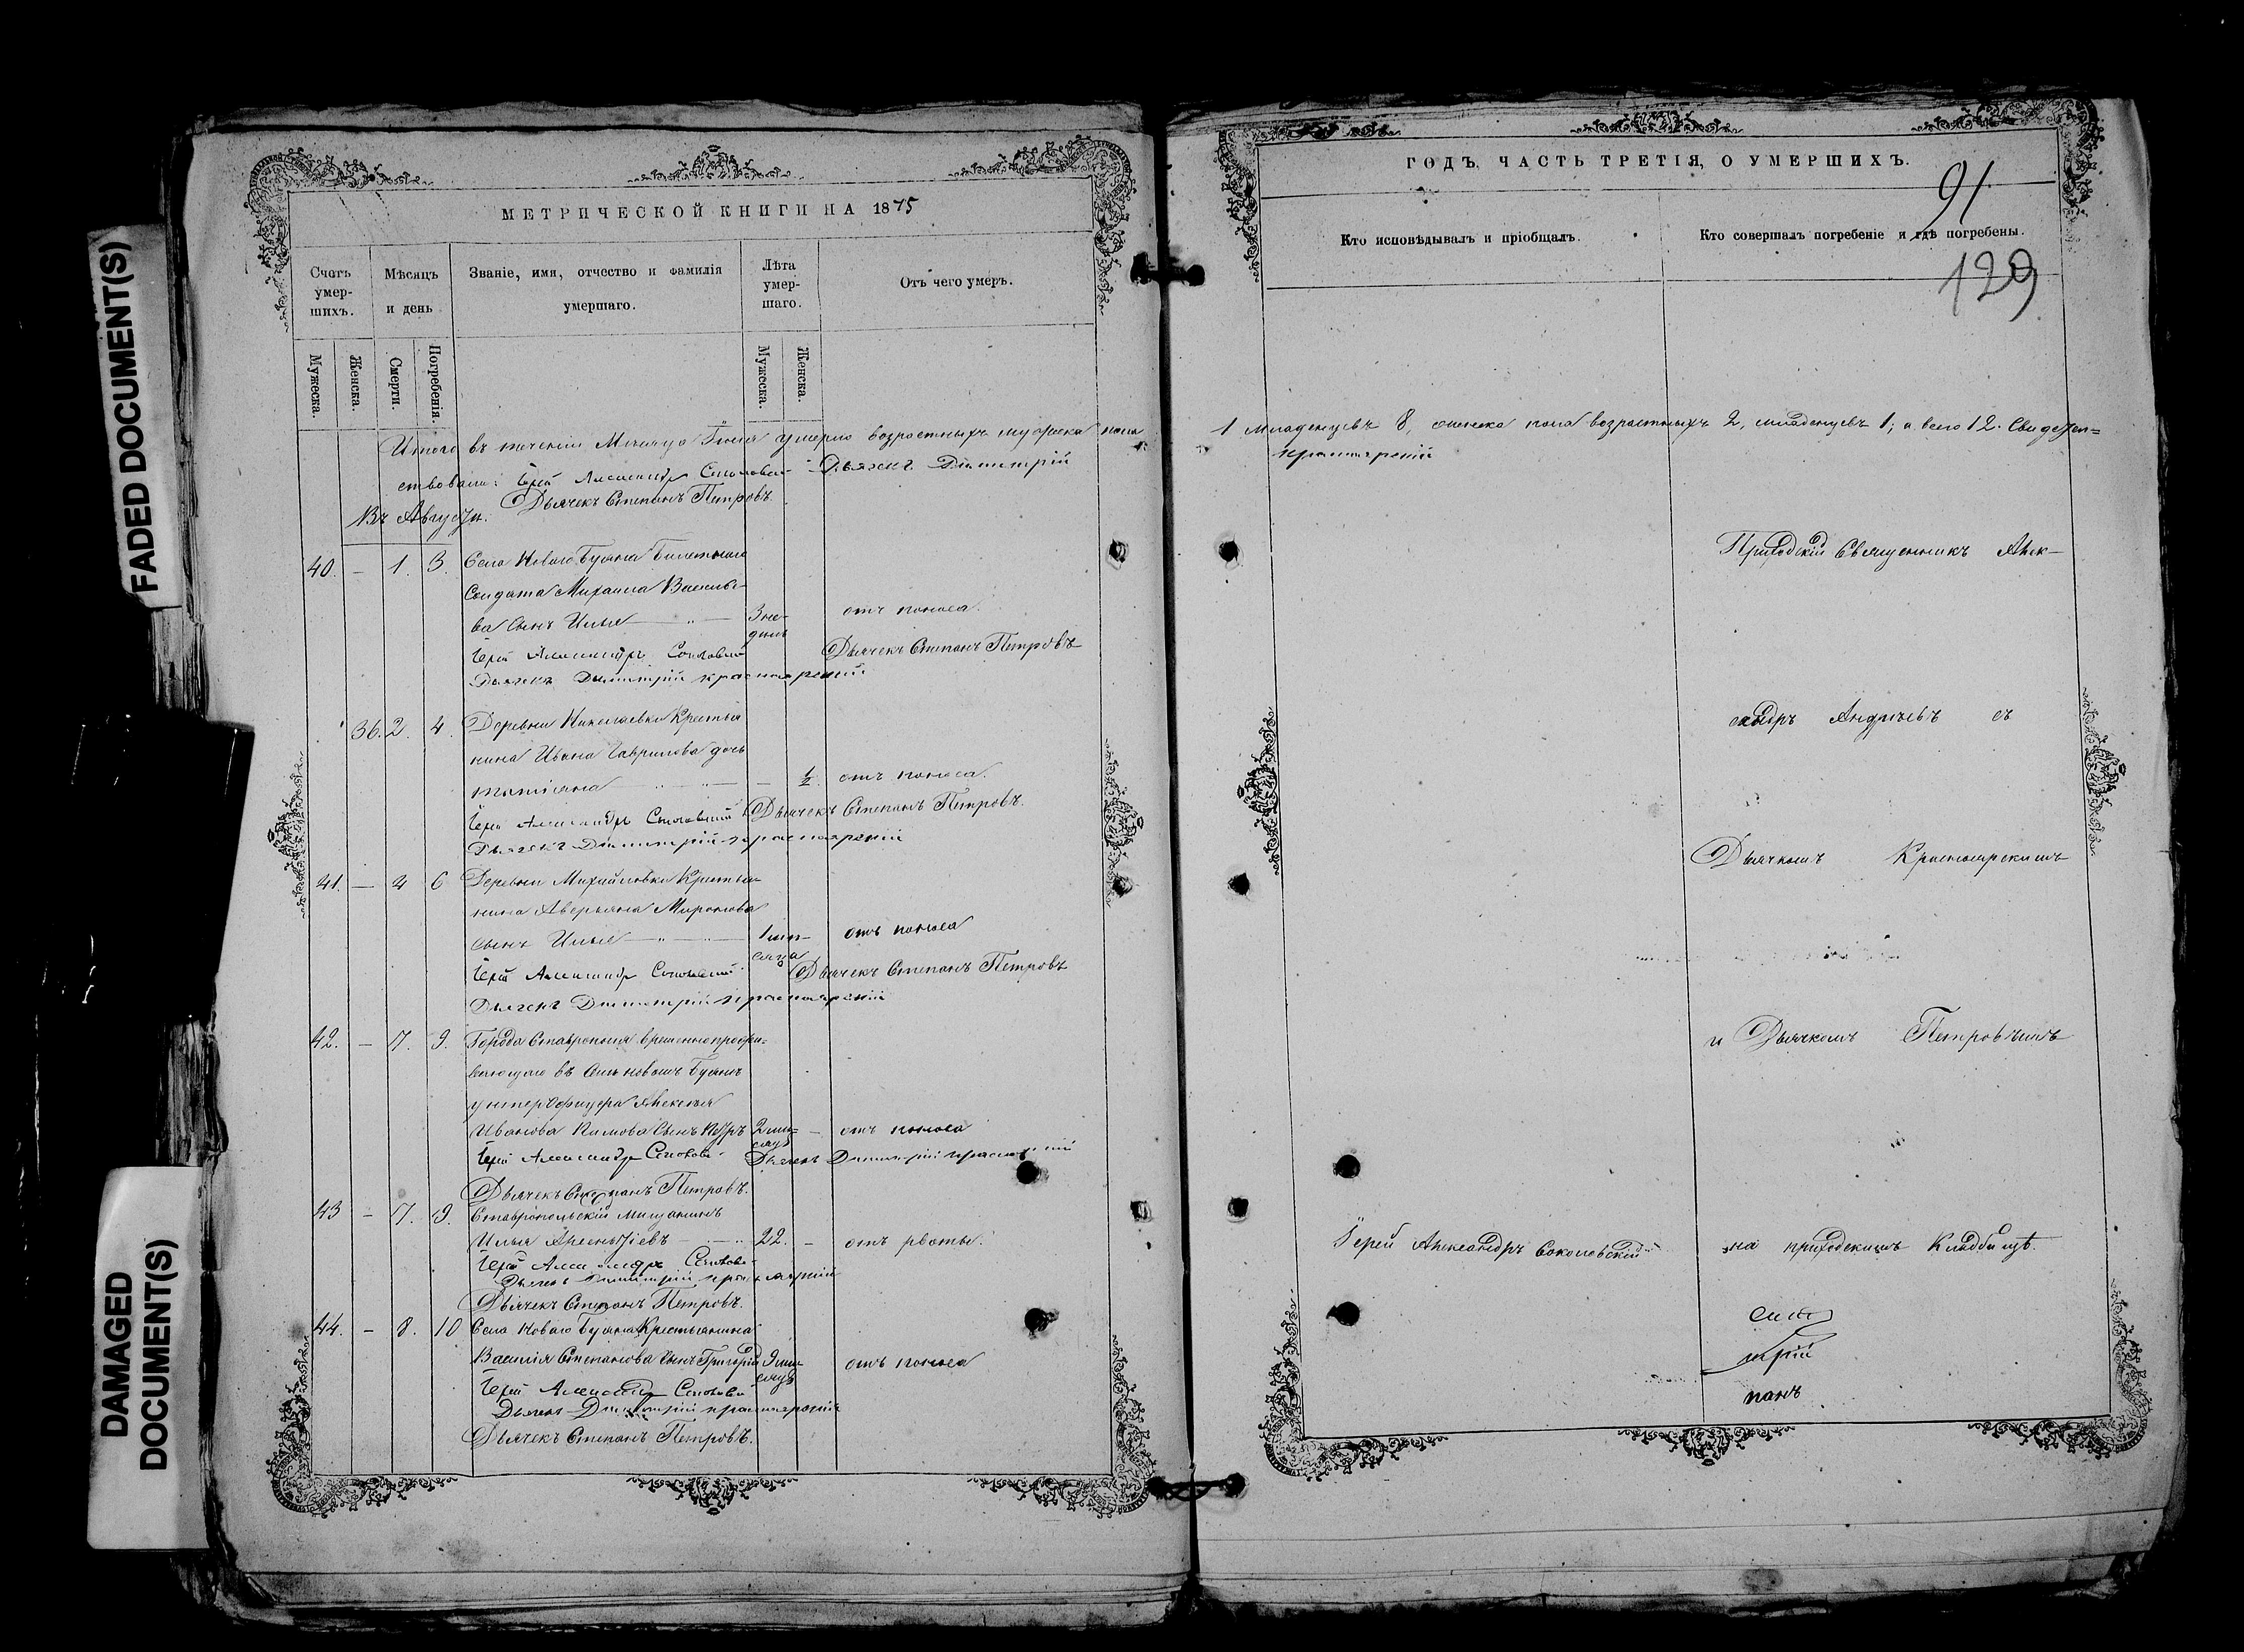 FADED DOCUMENT(S)
DAMAGED
DOCUMENT(S)
МЕТРИЧЕСКОЙ КНИГИ НА 1875
Счетъ умер-шихъ.
Мѣсяцъ и день
Званіе, имя, отчество и фамилія умершаго.
Лѣта умер-шаго.
Отъ чего умеръ.
Мужеска.
Женска.
Смерти.
Погребенія.
Мужеска.
Женска.
Итого въ теченіи Месяца Іюля умерло возрастныхъ мужеска пола
ствовали: Іерей Александръ Соколовскій Дьячекъ Димитрій
Дьячекъ Степанъ Петровъ.
Въ Августѣ.
40. – 1. 3. Села Новаго Буяна Билетнаго
Солдата Михаила Василье-
ва Сынъ Илья 3 не- отъ поноса.
дель
Іерей Александръ Соколовскій Дьячекъ Степанъ Петровъ
Дьячекъ Димитрій Красноярскій
36. 2. 4. Деревни Николаевки Крестья
нина Ивана Гаврилова дочь
Татіяна – ½ отъ поноса.
Іерей Александръ Соколовскій Дьячекъ Степанъ Петровъ.
Дьячекъ Димитрій Красноярскій
41. – 4 6 Деревни Михайловки Крестья-
нина Аверьяна Миронова
сынъ Илья 1 мѣ- отъ поноса
сяца
Іерей Александръ Соколовскій Дьячекъ Степанъ Петровъ
Дьячекъ Димитрій Красноярскій
42. – 7. 9. Города Ставрополя временно прожи-
вающаго въ Селѣ Новомъ Буянѣ
унтеръ Офицера Алексѣя
Иванова Климова Сынъ Петръ 2 мѣ- – отъ поноса
сяцъ
Іерей Александръ Соколовскій Дьячекъ Димитрій Красноярскій
Дьячекъ Степанъ Петровъ.
43 – 7. 9. Ставропольскій мѣщанинъ
Илья 22. – отъ рвоты.
Іерей Александръ Соколовскій
Дьячекъ Димитрій Красноярскій
Дьячекъ Степанъ Петровъ.
44. – 8. 10 Села Новаго Буяна Крестьянина
Василія Степанова Сынъ Григорій 9 мѣ- отъ поноса
сяцъ
Іерей Александръ Соколовскій
Дьячекъ Димитрій Красноярскій
Дьячекъ Степанъ Петровъ.
ГОДЪ, ЧАСТЬ ТРЕТІЯ, О УМЕРШИХЪ.
91
Кто исповѣдывалъ и пріобщалъ.
Кто совершалъ погребеніе и гдѣ погребены.
129
1 младенцевъ 8, женска пола возрастныхъ 2, младенцевъ 1; а всего 12. Свидетел=
Красноярскій
Приходскій Священникъ Алек-
сандръ Андреевъ съ
Дьячкомъ Красноярскимъ
и Дьячкомъ Петровымъ
Іерей Александръ Соколовскій на приходскомъ Кладбищѣ.
трій
панъ